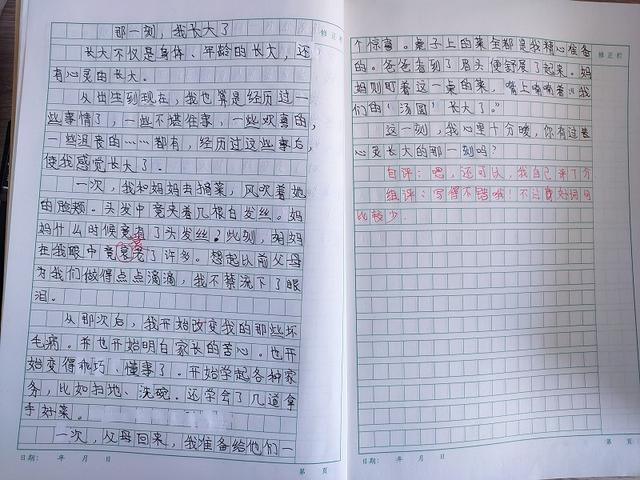 那一刻，我长大了
长大不仅是身体、年龄的长大，还
有心灵的长大。
从出生到现在，我也算是经历过一
些事情了，一些不堪往事，一些欢喜的，
一些沮丧的……都有，经历过这些事后，
使我感觉长大了。
一次，我和妈妈去摘菜，风吹着她
的脸颊。头发中竟夹着几根白发丝。妈
妈什么时候竟有了头发丝？此刻，妈妈
在我眼中竟老了许多。想起以前父母
为我们做得点点滴滴，我不禁流下了眼
泪。
从那次后，我开始改变我的那些坏
毛病。并也开始明白家长的苦心。也开
始变得乖巧、懂事了。开始学起各种家
务，比如扫地、洗碗。还学会了几道拿
手好菜。
一次，父母回来，我准备给他们一
日期： 年 月 日
第 页
修正栏
个惊喜。桌子上的菜全都是我精心准备
的。爸爸看到了眉头便舒展了起来。妈
妈则盯着这一桌的菜，嘴上喃喃着“我
们的‘汤圆’长大了。”
这一刻，我心里十分暖，你有过是
心灵长大的那一刻吗？
自评：嗯，还可以，我自己来了个
组评：写得不错哦！不过好词句
比较少。
日期： 年 月 日
第 页
修正栏